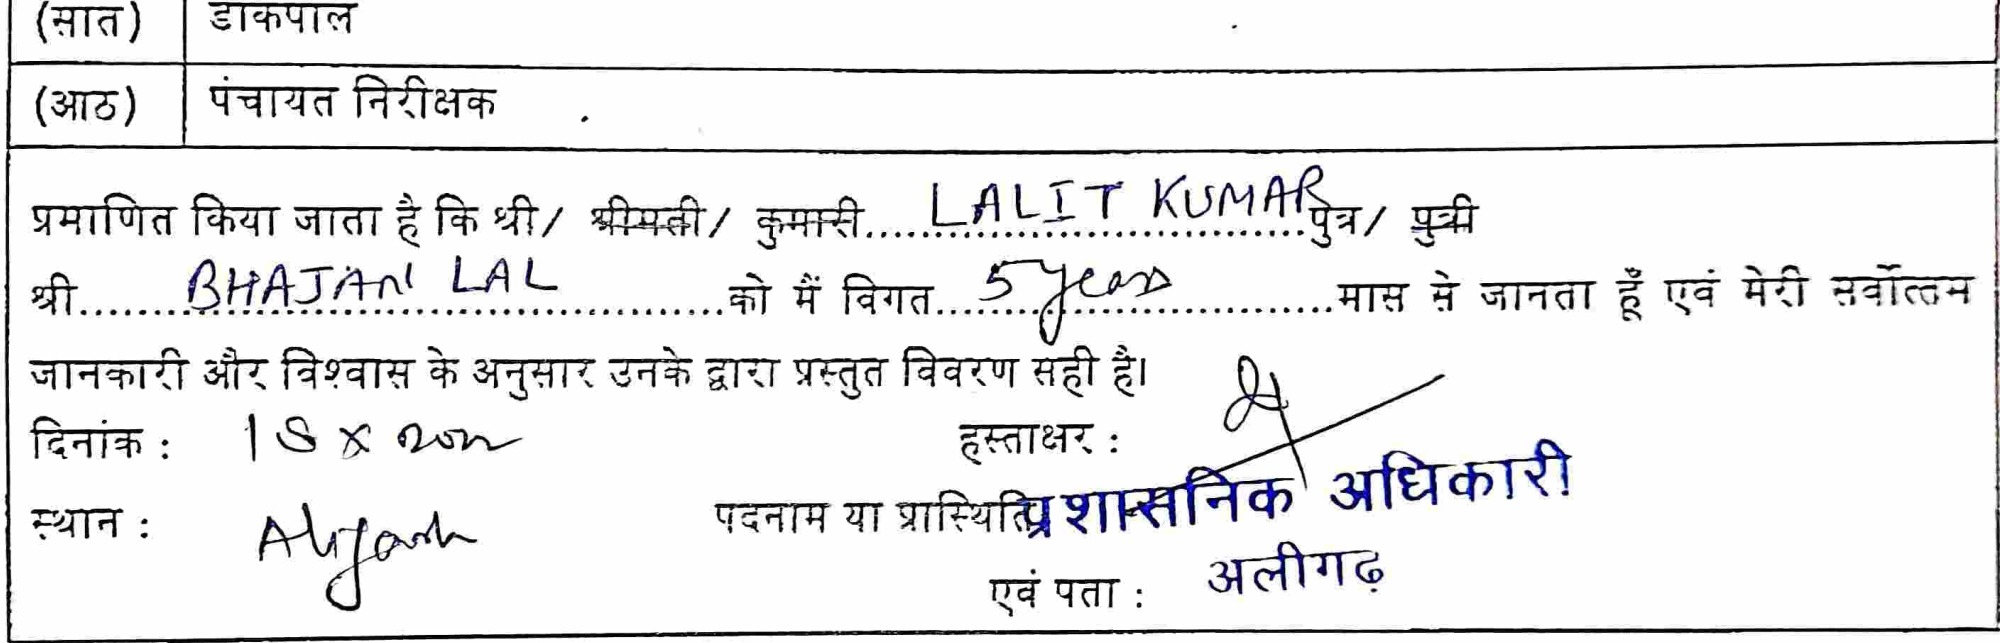 (सात) डाकपाल
(आठ) पंचायत निरीक्षक
प्रमाणित किया जाता है कि श्री/ श्रीमती/ कुमारी....LALIT KUMAR....पुत्र/ पुत्री
श्री....BHAJAN LAL....को मैं विगत....5 years....मास से जानता हूँ एवं मेरी सर्वोत्तम
जानकारी और विश्वास के अनुसार उनके द्वारा प्रस्तुत विवरण सही है।
दिनांक : हस्ताक्षर :
स्थान : Aligarh पदनाम या प्रास्थिति प्रशासनिक अधिकारी
एवं पता : अलीगढ़